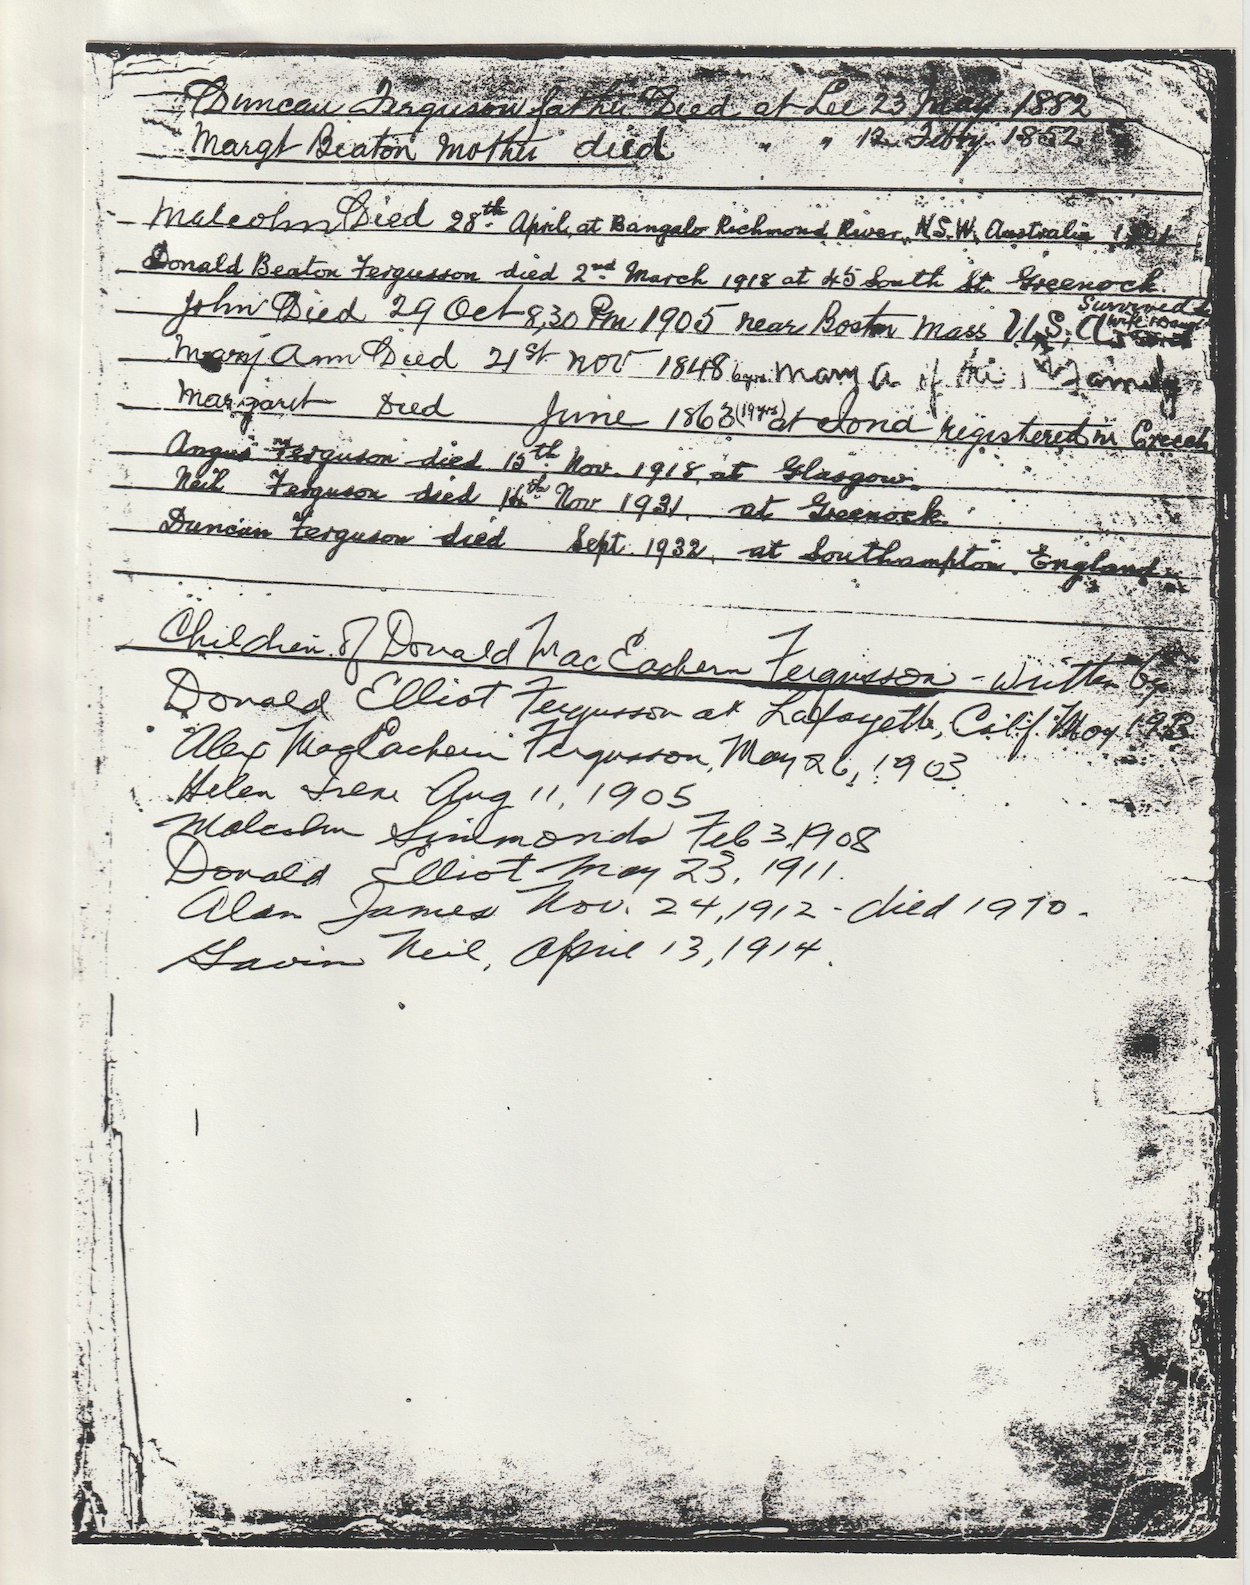 Duncan Ferguson father Died at Lee 23 May 1882
Margt Beaton Mother died " " 12 Febry. 1852
Malcolm Died 28th April, at Bangalo Richmond River, N.S.W. Australia
Donald Beaton Fergusson died 2nd March 1918 at 45 South St. Greenock.
John Died 29 Oct 8,30 Pm 1905 near Boston Mass U.S.A. Survived
Mary Ann Died 21st Nov 1848 Mary A. of the Family
Margaret Died June 1863 (19yrs) at Iona registered in Creich
Angus Ferguson died 15th Nov. 1918, at Glasgow.
Neil Ferguson died 14th Nov 1931, at Greenock.
Duncan Ferguson died Sept. 1932, at Southampton, England.
Children of Donald MacEachern Fergusson - written by
Donald Elliot Fergusson at Lafayette, Calif. May
Alex MacEachern Fergusson, May 26, 1903
Helen Irene Aug 11, 1905
Malcolm Simmonds Feb 3, 1908
Donald Elliot May 23, 1911.
Alan James Nov. 24, 1912 - died 1970.
Gavin Neil, April 13, 1914.